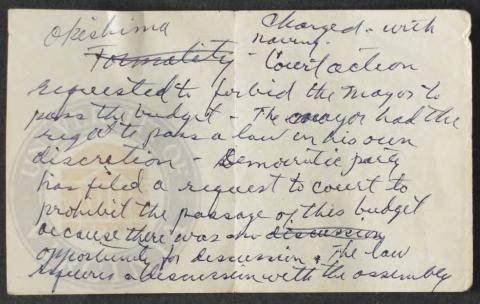 Okishima Charged - with
having.
Formality - Court action
requested to forbid the Mayor to
pass the budget - The mayor had the
right to pass a law on his own
discretion - Democratic party
has filed a request to court to
prohibit the passage of this budget
because there was no discussion
opportunity for discussion. The law
requires a discussion with the assembly